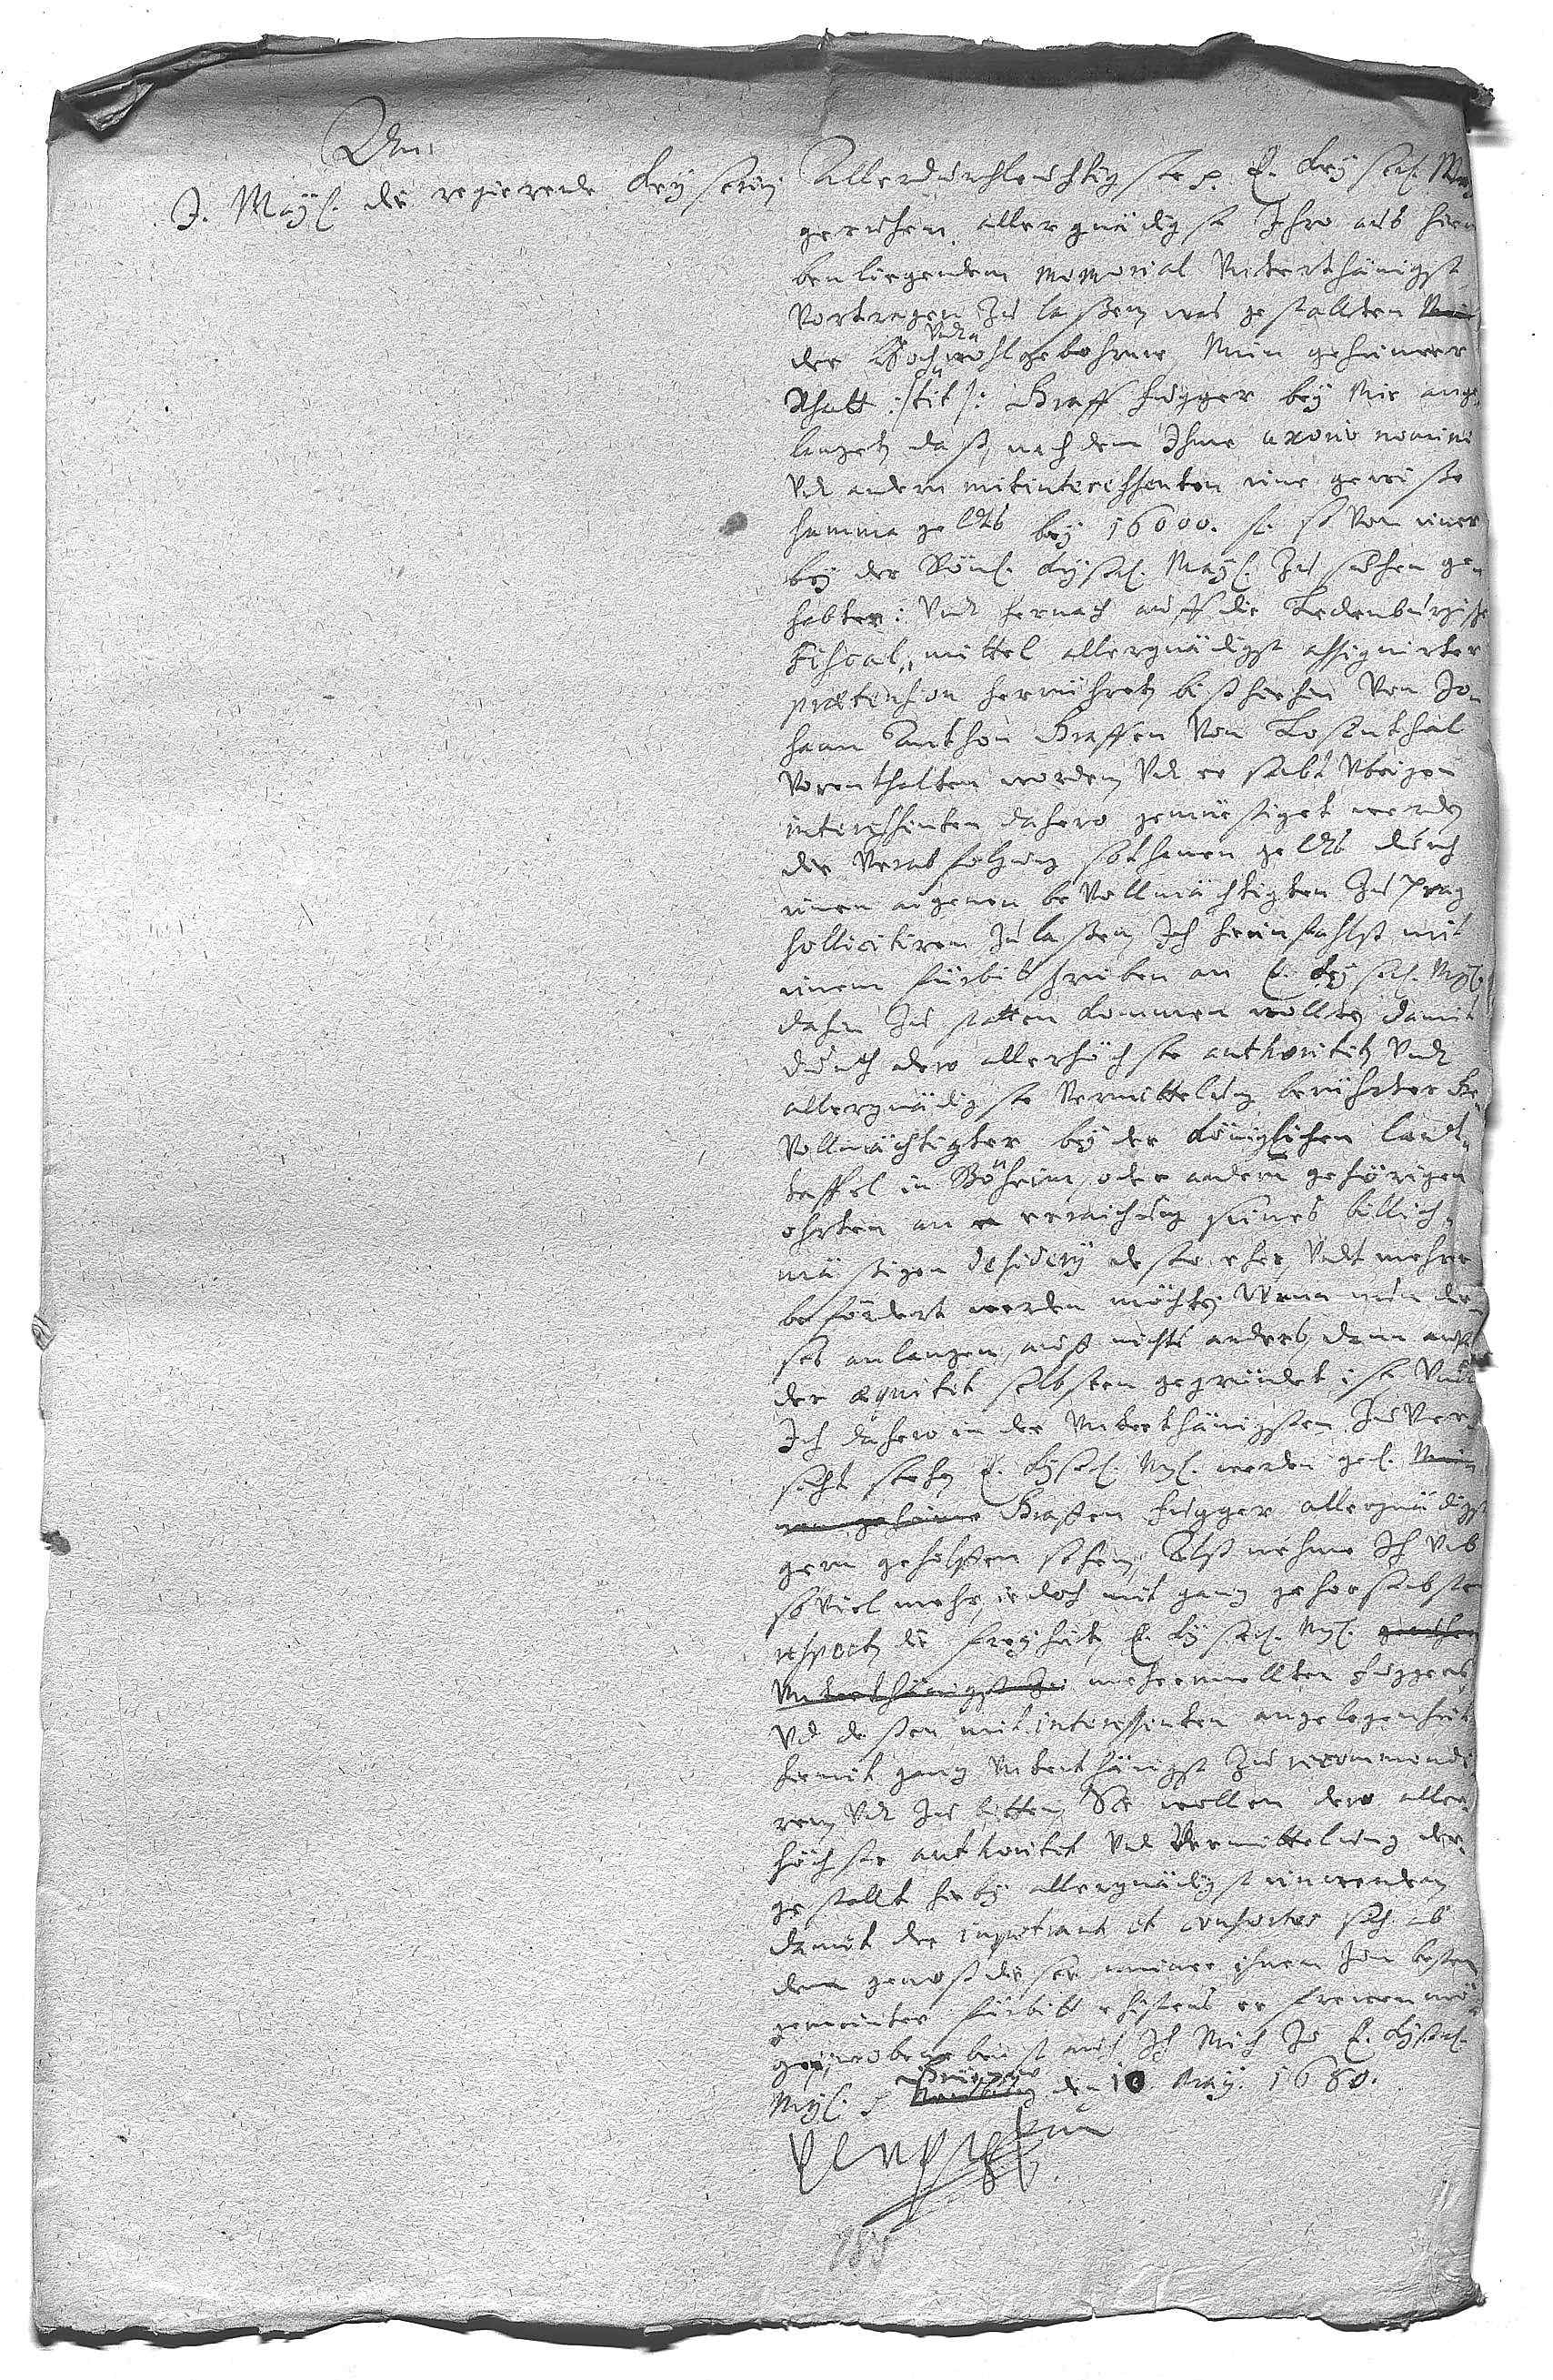 An
I. Mayl. die regierende Keyserin
Allerdurchleuchtigste p. E. Keyserl. May
geruhen allergnädigst Ihro aus hier
benliegendem memorial Unterthänigst
Vortragen zu laßen, was gestallten
Undt
der Hochwohlgebohrne Mein geheimer
Rhatt /: tit :/ Graff Fugger bey Mir ange,
langet, daß, nach dem Ihme uxorio nomine
Undt andern mitinteressenten eine gewiße
summa geldts bey 16000. f. so von einer
bey der Röml. Keyserl. Mayl. zu suchen ge,
habten: Undt hernach auff die Tedenburgische
Fiscal,, mittel allergnädigst assignirter
praetension herrühret, bißhierhin Von Jo,
hann Anthon Graffen Von Losenthal
Vorenthalten worden, Undt er sambt Übrigen
interessenten dahero gemüeßiget werden,
die Verabfolgung sothanen geldts durch
einen aigenen beVollmächtigten zu Prag
sollicitiren zulaßen, Ich hierinfahls mit
einem fürbittschreiben an E. Keyserl. Myl.
dahin zu statten kommen wollte, damit
durch dero allerhöchste authoritet, Undt
allergnädigste Vermittelung berührter Be,
Vollmächtigter bey der Königlichen landt,
taffel in Böheim, oder andern gehörigen
ohrten an erraichung seines billich,
mäßigen desidery desto eher, Undt mehrer
befördert werden möchte; Wann nun die,
ses anlangen, auff nichts anders, dann auff
der aequitet selbsten gegründet ist, Undt
Ich dahero in der Unterthänigsten zuVer
sicht stehe, E. Keyserl. Myl. werden gel.
Graffen Fugger allergnädigst
gern geholffen sehen, Alß nehme Ich Umb
so Viel mehr, iedoch mit ganz gehorsambsten
respect, die freyheit, E. Keyserl. Myl.
Unterthänigst zu mehrernwellten Fuggers,
Undt deßen mit interessenten angelegenheit
hiemit ganz Unterthänigst zu recommendi
ren, Undt zu bitten, Sie wollen dero aller,
höchste authoritet Undt Vermittelung der,
gestallt hiebey allergnädigst einwenden,
damit der impetrant et consortes sich ab
dem genoß dießer meiner ihnen zum besten
gemeinter fürbitt ehistens erfrewen mö
gen, wobenebenst auch Ich Mich zu E. Keyserl.
Myl. p den 10. May. 1680.